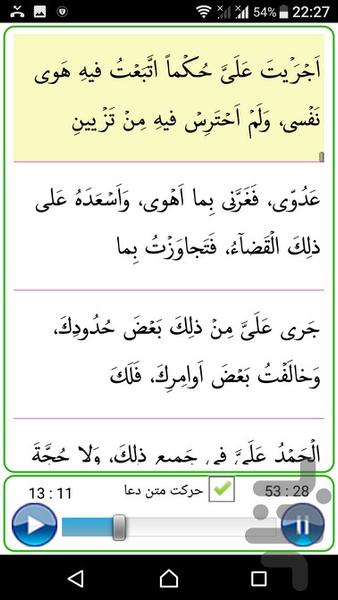 54% 22:27
اَجْرَيْتَ عَلَىَّ حُكْماً اتَّبَعْتُ فيهِ هَوى
نَفْسى، وَلَمْ اَحْتَرِسْ فيهِ مِنْ تَزْيينِ
عَدُوّى، فَغَرَّنى بِما اَهْوى، وَاَسْعَدَهُ عَلى
ذلِكَ الْقَضآءُ، فَتَجاوَزْتُ بِما
جَرى عَلَىَّ مِنْ ذلِكَ بَعْضَ حُدُودِكَ،
وَخالَفْتُ بَعْضَ اَوامِرِكَ، فَلَكَ
الْحَمْدُ عَلَىَّ فى جَميعِ ذلِكَ، وَلا حُجَّةَ
13 : 11 حرکت متن دعا 53 : 28